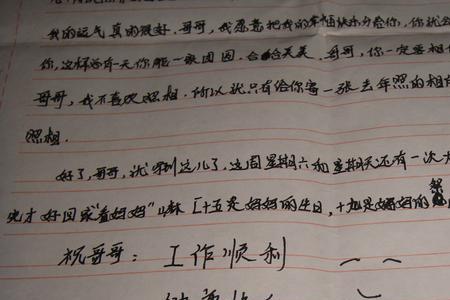 我的运气真的很好.哥哥,我愿意把我的幸福快乐分给你,你就会
你,这样还有一天你那一家团圆,合合美美.哥哥,你一定要相信
哥哥,我不喜欢照相.所以就只有给你寄一张去年照的相
照相.
好了,哥哥,就写到这儿了.这周星期六和星期天还有一次
完才好回家看妈妈"[十五是妈妈的生日,十九是妈妈的
祝哥哥:工作顺利